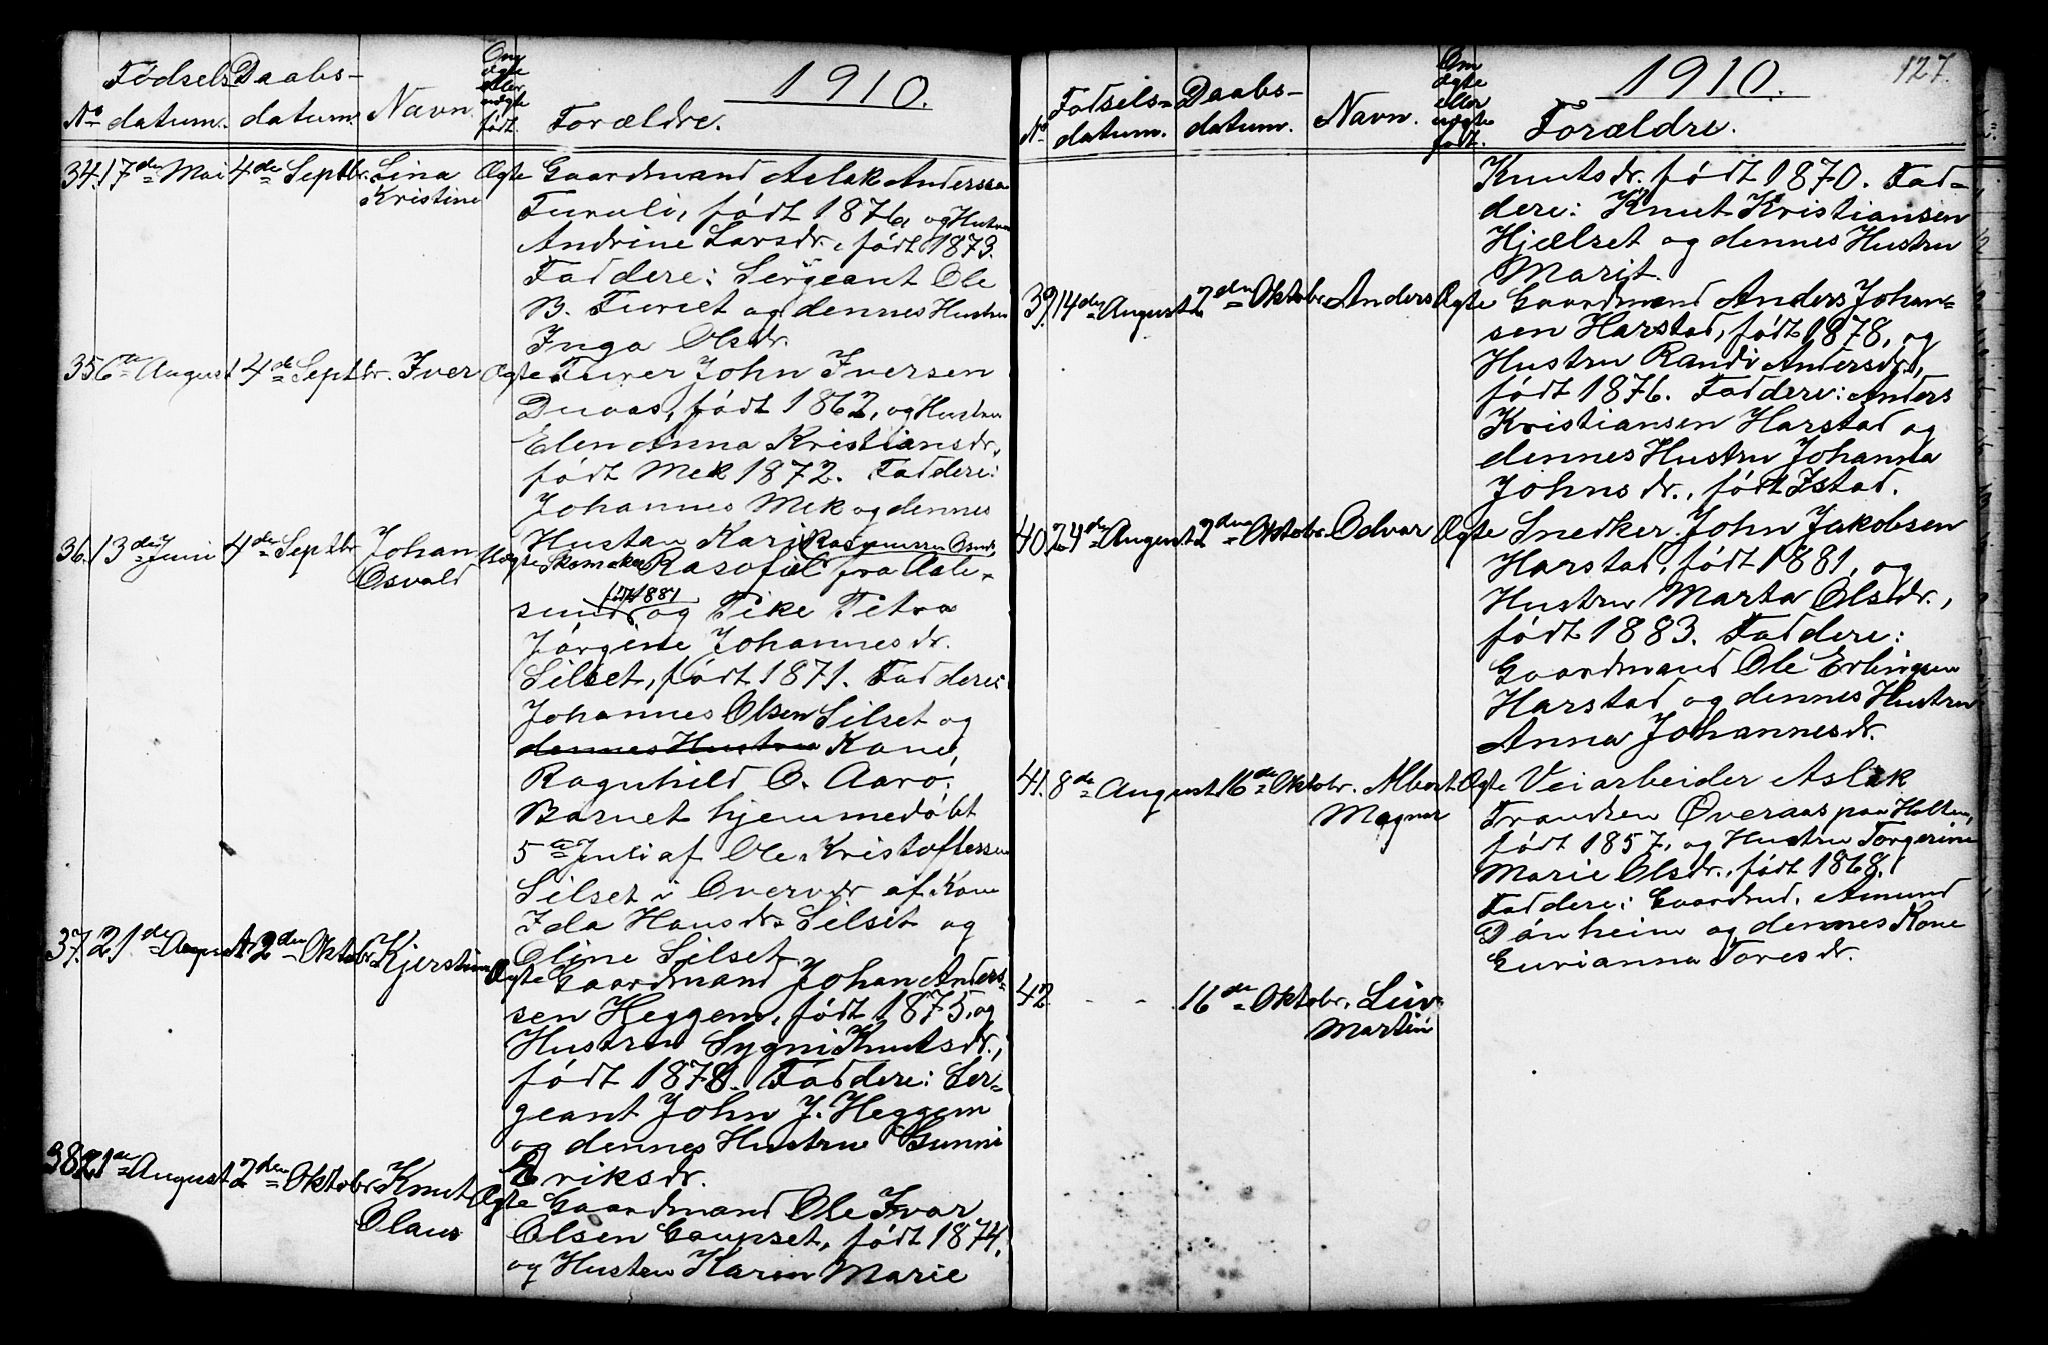 1910.
No
Fødsels-
datum.
Daabs-
datum.
Navn.
Om
ægte
eller
uægte
født.
Forældre.
34. 17de Mai 4de Septbr. Lina
Kristine
Ægte Gaardmand Aslak Anderssen
født 1876, og Hustru
Andrine Larsdr., født 1873.
Faddere: Sergeant Ole
B. og dennes Hustru
Inga Olsdr.
35 6te August 4de Septbr. Iver Ægte John Iversen
født 1862, og Hustru
Elen Anna Kristiansdr.,
født Mek 1872. Faddere:
Johannes Mek og dennes
Hustru Kari
36. 13de Juni 4de Septbr. Johan
Osvald
Uægte Skomaker fra Aale-
sund født 1881 og Pike Petra
Jørgine Johannesdr.
Silset, født 1871. Faddere:
Johannes Olsen Silset og
dennes Hustru Kone,
Ragnhild O. Aarø.
Barnet hjemmedøbt
5te Juli af Ole Kristoffersen
Silset i Overvær af Kone
Ida Hansdr. Silset og
Oline Silset.
37. 21de August 2den Oktobr. Kjerstina
Ægte Gaardmand Johan Anders-
sen Heggem, født 1875, og
Hustru Sygni Knutsdr.,
født 1878. Faddere: Ser-
geant John J. Heggem
og dennes Hustru Gunni
Eriksdr.
38 21de August 2den Oktobr. Knut
Olaus
Ægte Gaardmand Ole Ivar
Olsen Gaupset, født 1874,
og Hustru Karen Marie
127.
1910.
No
Fødsels-
datum.
Daabs-
datum.
Navn.
Om
ægte
eller
uægte
født.
Forældre.
Knutsdr. født 1870. Fad-
dere: Knut Kristiansen
Hjælset og dennes Hustru
Marit.
39. 14de August 2den Oktobr. Anders Ægte Gaardmand Anders Johan-
sen Harstad, født 1878, og
Hustru Randi Andersdr.,
født 1876. Faddere: Anders
Kristiansen Harstad og
dennes Hustru Johanna
Johnsdr., født Istad.
40. 24de August 2den Oktobr. Odvar Ægte Snedker John Jakobsen
Harstad, født 1881, og
Hustru Marta Olsdr.,
født 1883. Faddere:
Gaardmand Ole Erlingsen
Harstad og dennes Hustru
Anna Johannesdr.
41. 8de August 16de Oktobr. Albert
Magnar
Ægte Veiarbeider Aslak
Trondsen Øveraas paa Holten,
født 1857, og Hustru Torgerine
Marie Olsdr., født 1868.
Faddere: Gaardmd. Amund
Dønheim og dennes Kone
Gurianna Toresdr.
42 - - 16de Oktobr.
Martin